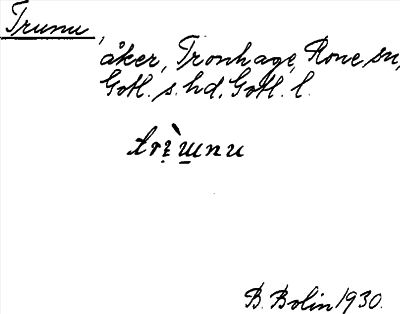 Trunu,
åker, Tronhage, Rone sn,
Gotl. s. hd, Gotl. l.
B. Bolin 1930.